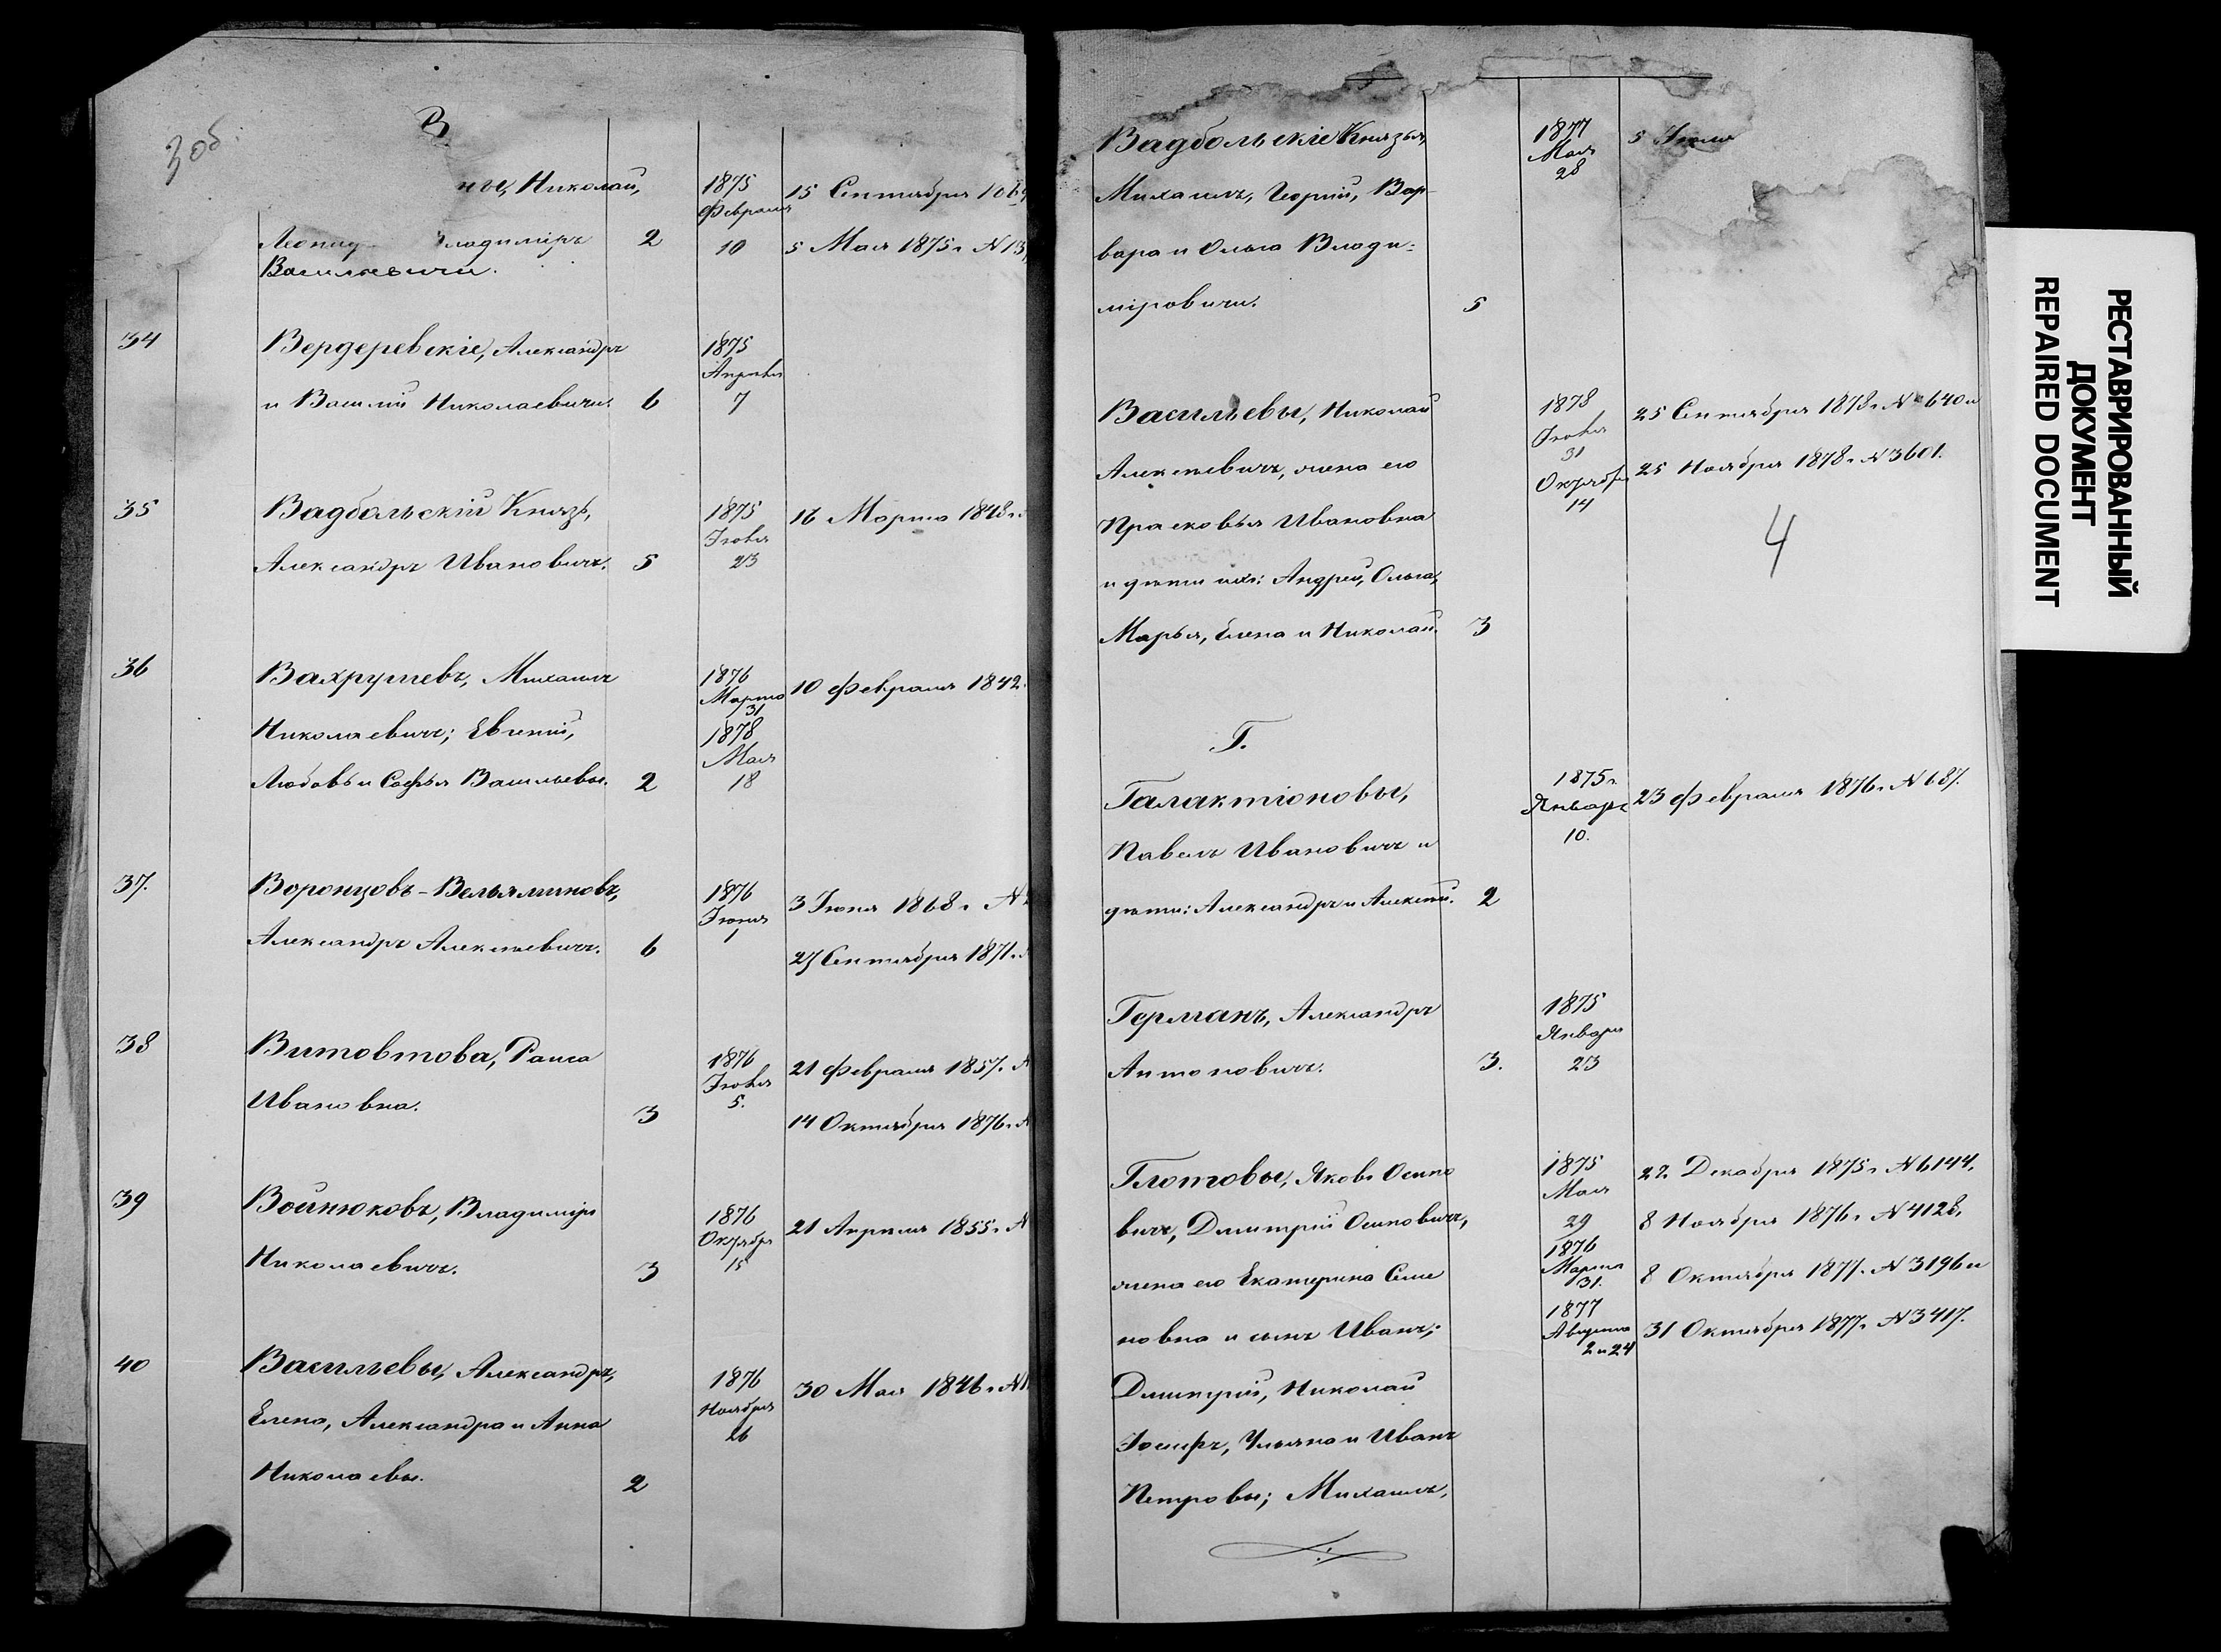 3 об.
В
ны, Николай,
Леонид Владиміръ
Васильевичи.
2
1875
Февраля
10
15 Сентября
5 Мая 1875 г. N
34
Вердеревскіе, Александръ
и Василій Николаевичи.
6
1875
Апрѣля
7
35
Вадбольскій Князь,
Александръ Ивановичъ.
5
1875
Іюля
23
16 Марта 1848 г.
36
Вахрушевъ, Михаилъ
Николаевичъ; Евгеній,
Любовь и Софья Васильевы.
2
1876
Марта
31
1878
Мая
18
10 Февраля 1842
37.
Воронцовъ-Вельяминовъ,
Александръ Алексѣевичъ.
6
1876
Іюня
1
3 Іюня 1868 г. N
27 Сентября 1871 г.
38
Витовтова, Раиса
Ивановна.
3
1876
Іюля
5.
21 Февраля 1857 г. N
14 Октября 1876 г. N
39
Войнюковъ, Владиміръ
Николаевичъ.
3
1876
Октября
15
21 Апрѣля 1855 г. N
40
Васильевы, Александръ,
Елена, Александра и Анна
Николаевы.
2
1876
Ноября
26
30 Мая 1846 г. N
Вадбольскіе Князья,
Михаилъ, Георгій, Вар-
вара и Ольга Влади-
міровичи.
5
1877
Мая
28
5 Іюля
Васильевы, Николай
Алексѣевичъ, жена его
Прасковья Ивановна
и дѣти ихъ: Андрей, Ольга,
Марья, Елена и Николай.
3
1878
Іюля
31
Октября
14
25 Сентября 1878 г. N 2640 и
25 Ноября 1878 г. N 3601.
4
Г.
Галактіоновы,
Павелъ Ивановичъ и
дѣти: Александръ и Алексѣй.
2
1875 г.
Января
10.
23 Февраля 1876 г. N 687.
Германъ, Александръ
Антоновичъ.
3.
1875
Января
23
Глотовы, Яковъ Осипо
вичъ, Дмитрій Осиповичъ,
жена его Екатерина Семе
новна и сынъ Иванъ;
Дмитрій, Николай
Іосифъ, Ульяна и Иванъ
Петровы; Михаилъ,
1875
Мая
29
1876
Марта
31.
1877
Августа
2 и 24
22 Декабря 1875 г. N 6144,
8 Ноября 1876 г. N 4128,
8 Октября 1877 г. N 3196 и
31 Октября 1877 г. N 3417.
РЕСТАВРИРОВАННЫЙ
ДОКУМЕНТ
REPAIRED DOCUMENT